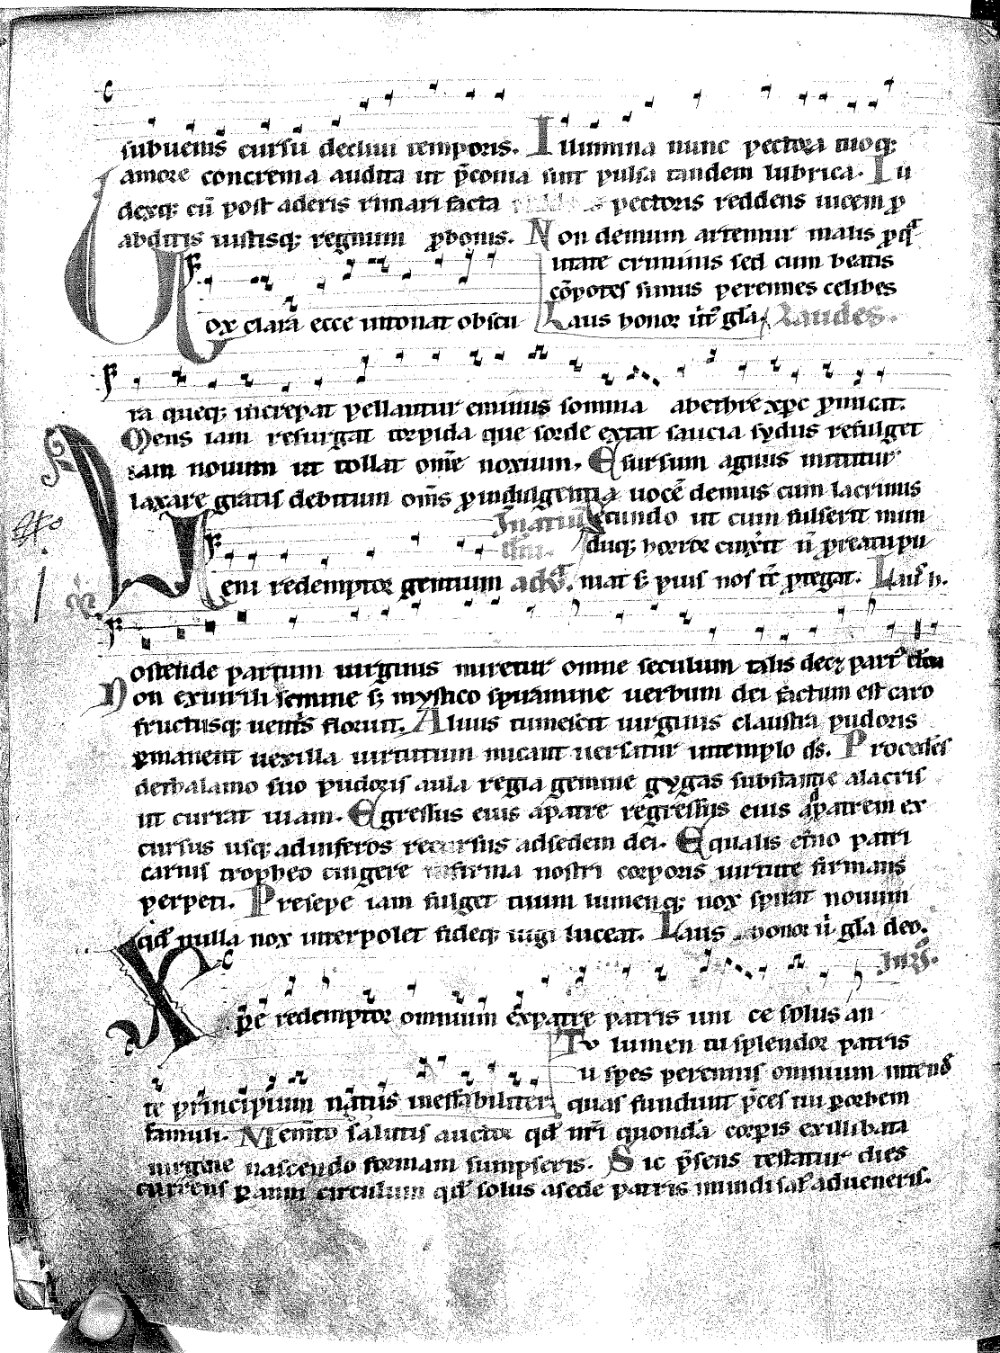 subueniẽs cursu decliui temporis. Illumina nunc pectora tuoq;
amore concrema audita ut p̃conia sint pulsa tandem lubrica. Iu
dexq; cũ post aderis rimari facta pectoris reddens uicem p
abditis iustisq; regnum pro bonis. Non demum artemur malis p q̃
litate criminis sed cum beatis
cõpotes simus perennes celibes
Laus honor uirt' gl̃a Laudes.
Vox clara ecce intonat obscu
ra queq; increpat pellantur eminus somnia ab ethre xp̃c p̃micat.
Mens iam resurgat torpida que sorde extat saucia sydus refulget
iam nouum ut tollat om̃e noxium. E sursum agnus mittitur
laxare gratis debitum om̃s p indulgentia uocẽ demus cum lacrimis
Secundo ut cum fulserit mun
duq; horror cinxerit ñ p reatu pu
Veni redemptor gentium niat s; pius nos tc̃ p̱tegat. Laus h.
ostende partum uirginis miretur omne seculum talis dec& part'
Non ex uirili semine s; mystico spiramine uerbum dei factum est caro
fructusq; uentris floruit. Aluus tumescit uirginis claustra pudoris
p̱manent uexilla uirtutum micant uersatur in templo ds̃. Procedẽs
de thalamo suo pudoris aula regia gemine gygas substantie alacris
ut currat uiam. Egressus eius a patre regressus eius ap̱atrem ex
cursus usq; ad inferos recursus ad sedem dei. Equalis et̃no patri
carnis tropheo cingere infirma nostri corporis uirtute firmans
perpeti. Presepe iam fulget tuum lumenq; nox spirat nouum
qd̃ nulla nox interpolet fideq; iugi luceat. Laus honor ũ gl̃a deo.
Xp̃e redemptor omnium ex patre patris uni ce solus an
Tu lumen tu splendor patris
tu spes perennis omnium intend̃
te principium natus ineffabiliter quas fundunt p̃ces tui p̱ orbem
famuli. Mem̃to salutis auctor qd̃ nr̃i quondã corp̱is ex illibata
uirgine nascendo formam sumpseris. Sic p̃sens testatur dies
currens p̱ anni circulum qd̃ solus a sede patris mundi sal' adueneris.